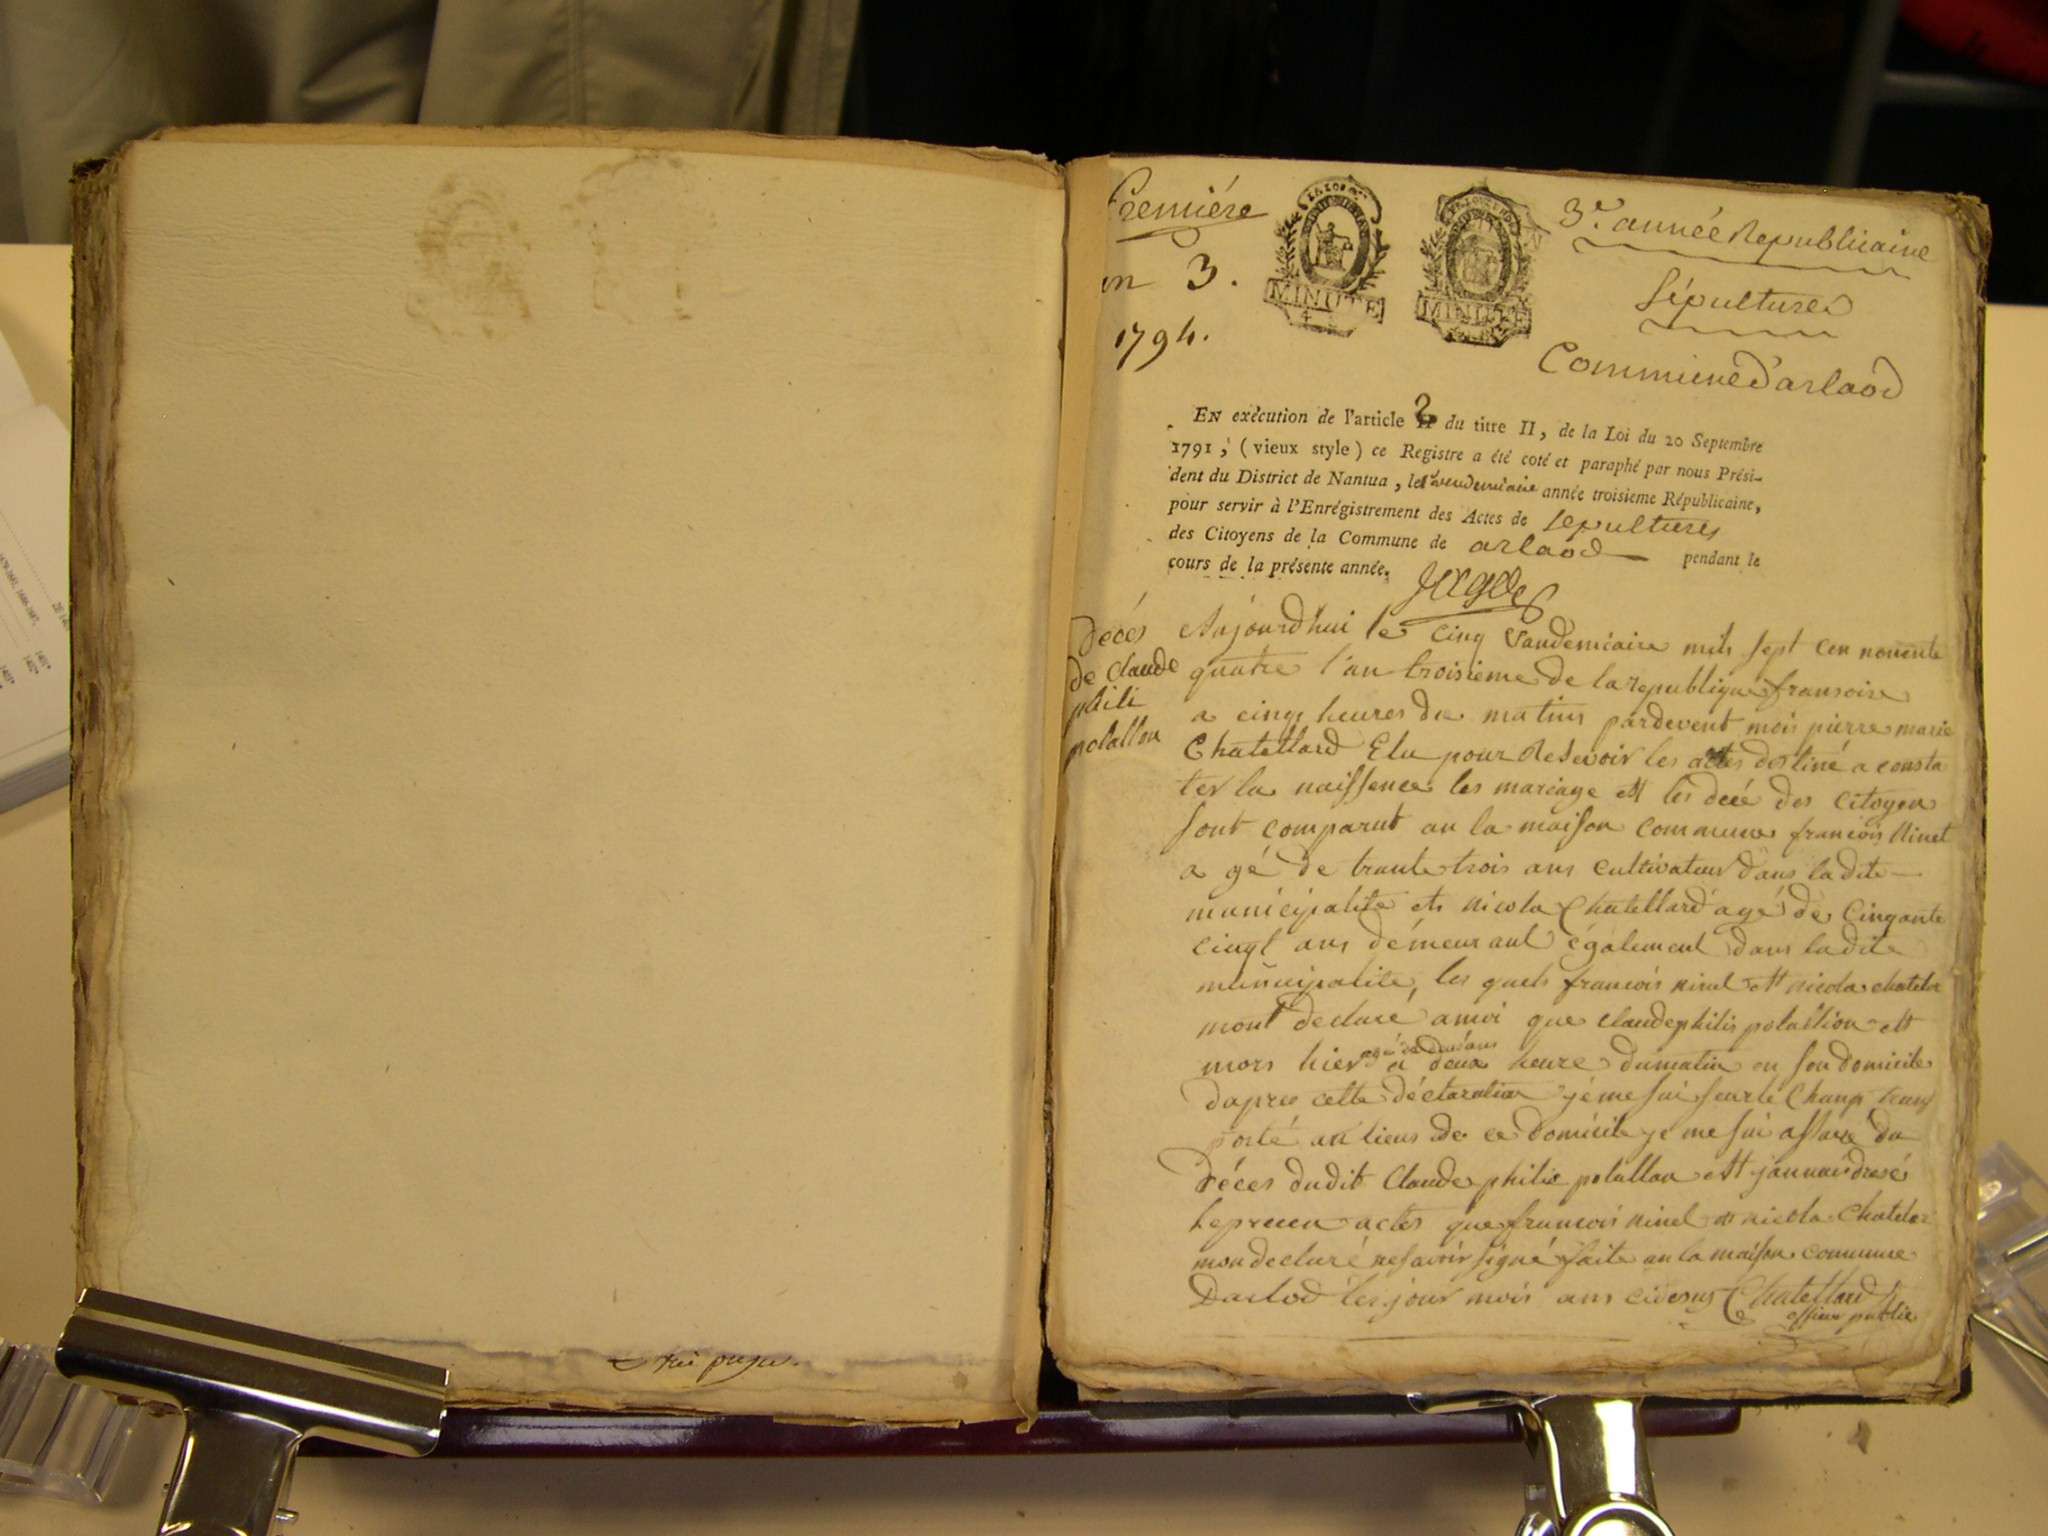 Première
an 3.
1794.
LA LOI
MINUTE
MINUTE
3e. année Republicaine
Sépultures
Commune d'arlaod
EN exécution de l'article 2 du titre II, de la Loi du 20 Septembre
1791, (vieux style) ce Registre a été coté et paraphé par nous Prési-
dent du District de Nantua, le 1er vendemiaire année troisieme Républicaine,
pour servir à l'Enrégistrement des Actes de sepultures
des Citoyens de la Commune de arlaod pendant le
cours de la présente année.
Décés
de Claude
phili
polallon
Aujourd'hui le cinq Vandemiaire mils sept cen nonente
quatre l'an troisieme de la republique fransoise
a cinq heures du matins pardevent moi pierre marie
Chatellard Elu pour Resevoir les actes destiné a consta
ter la naissence les mariage ett les décé des Citoyen
sont comparut an la maison commune francois Ninet
a gé de trante trois ans cultivateur dans ladite
municipalite et nicola Chatellard agé de Cinqante
cinqt ans démeurant également dans ladite
municipalite, les quels francois ninet ett nicola chatelar
mont declaré a moi que claude philis polallion ett
mors hier agé de deus ans a deux heure du matin en son domicile
daprée cette déclaration je me sui seur le Champ trans
porté au lieus de ce domicile je me sui assure du
Déces dudit Claude philis polallon ett jannai dresé
le presen actes que francois ninet et nicola Chatelar
mon declaré ne savoir signé faite an la maison commune
Darlod les jour mois ans cidesus Chatellard
officier public